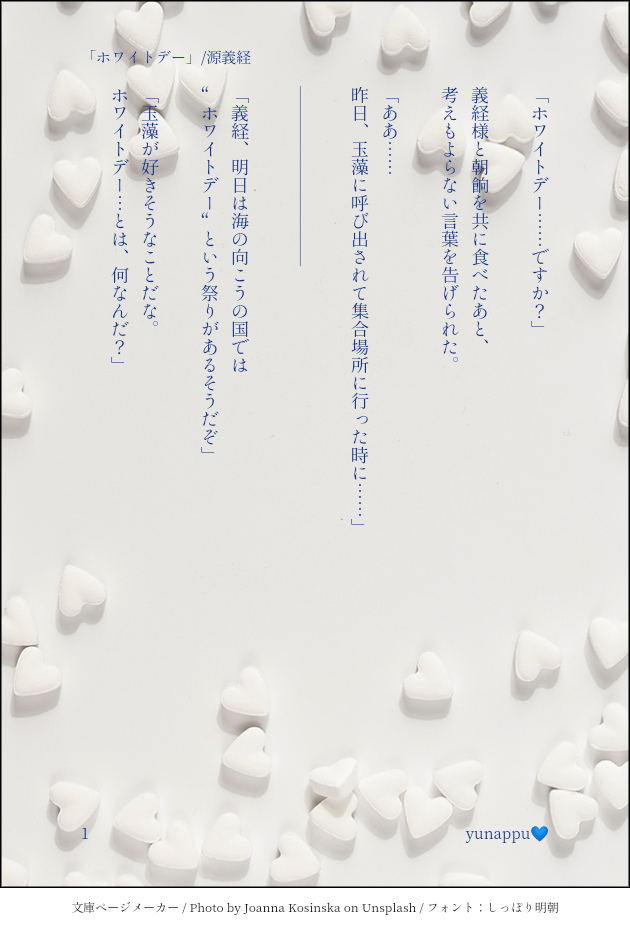 「ホワイトデー」/源義経
「ホワイトデー……ですか？」
義経様と朝餉を共に食べたあと、
考えもよらない言葉を告げられた。
「ああ……
昨日、玉藻に呼び出されて集合場所に行った時に……」
「義経、明日は海の向こうの国では
“ホワイトデー“という祭りがあるそうだぞ」
「玉藻が好きそうなことだな。
ホワイトデー…とは、何なんだ？」
1
yunappu💙
文庫ページメーカー / Photo by Joanna Kosinska on Unsplash / フォント：しっぽり明朝